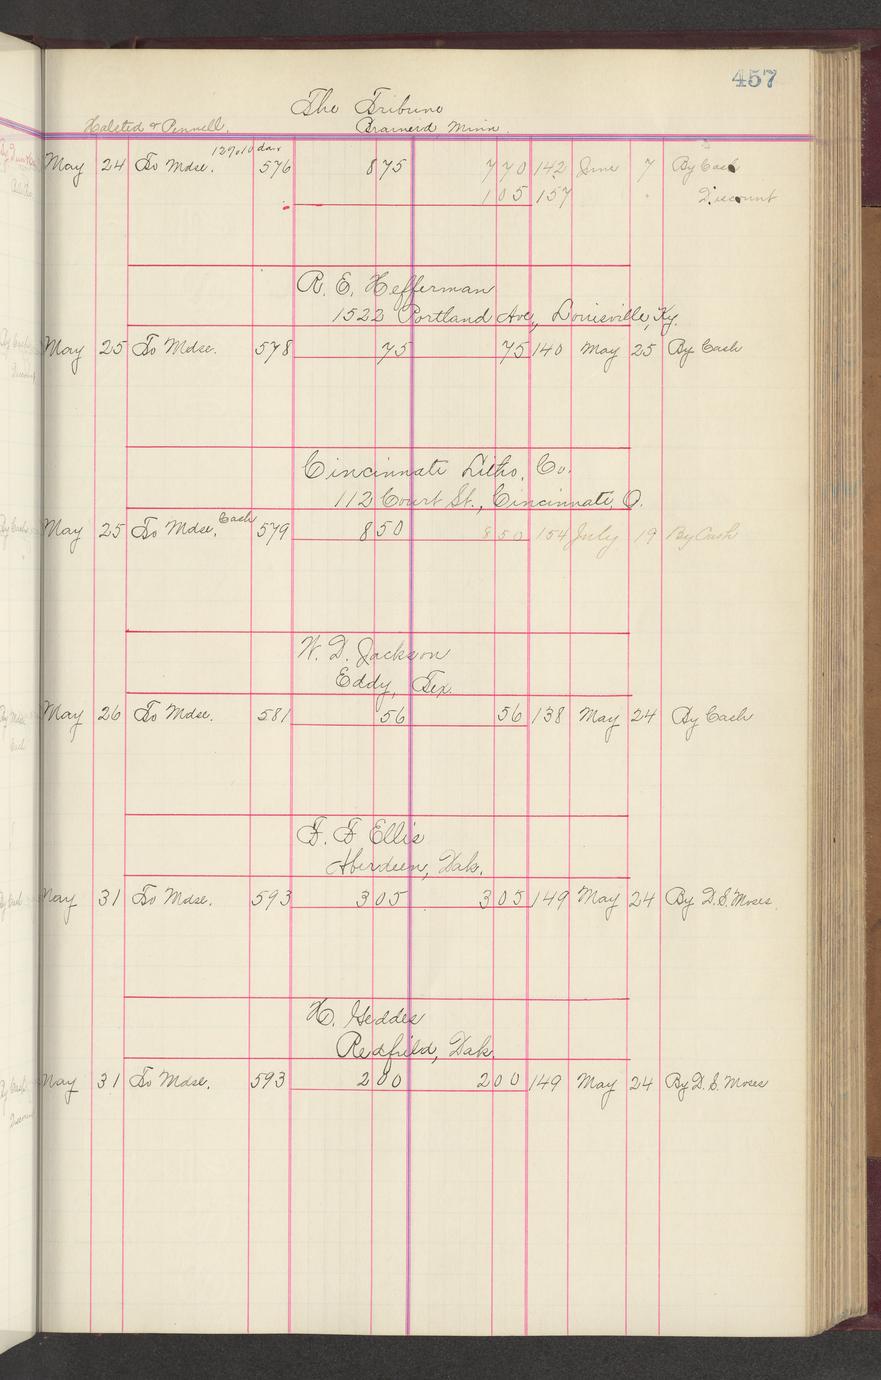 457
The Tribune
Halsted & Pennell. Brainerd Minn.
12% 10 days
May 24 To Mdse. 576 8 75 7 70 142 June 7 By Cash
1 05 157 " Discount
R. E. Hefferman
1522 Portland Ave, Louisville, Ky.
May 25 To Mdse. 578 75 75 140 May 25 By Cash
Cincinnate Litho. Co.
112 Court St., Cincinnate, O.
May 25 To Mdse. Cash 579 8 50 8 50 154 July 19 By Cash
W. D. Jackson
Eddy, Tex.
May 26 To Mdse. 581 56 56 138 May 24 By Cash
F. F Ellis
Aberdeen, Dak.
May 31 To Mdse. 593 3 05 3 05 149 May 24 By D. S. Moses.
H. Geddes
Redfield, Dak.
May 31 To Mdse. 593 2 00 2 00 149 May 24 By D. S. Moses